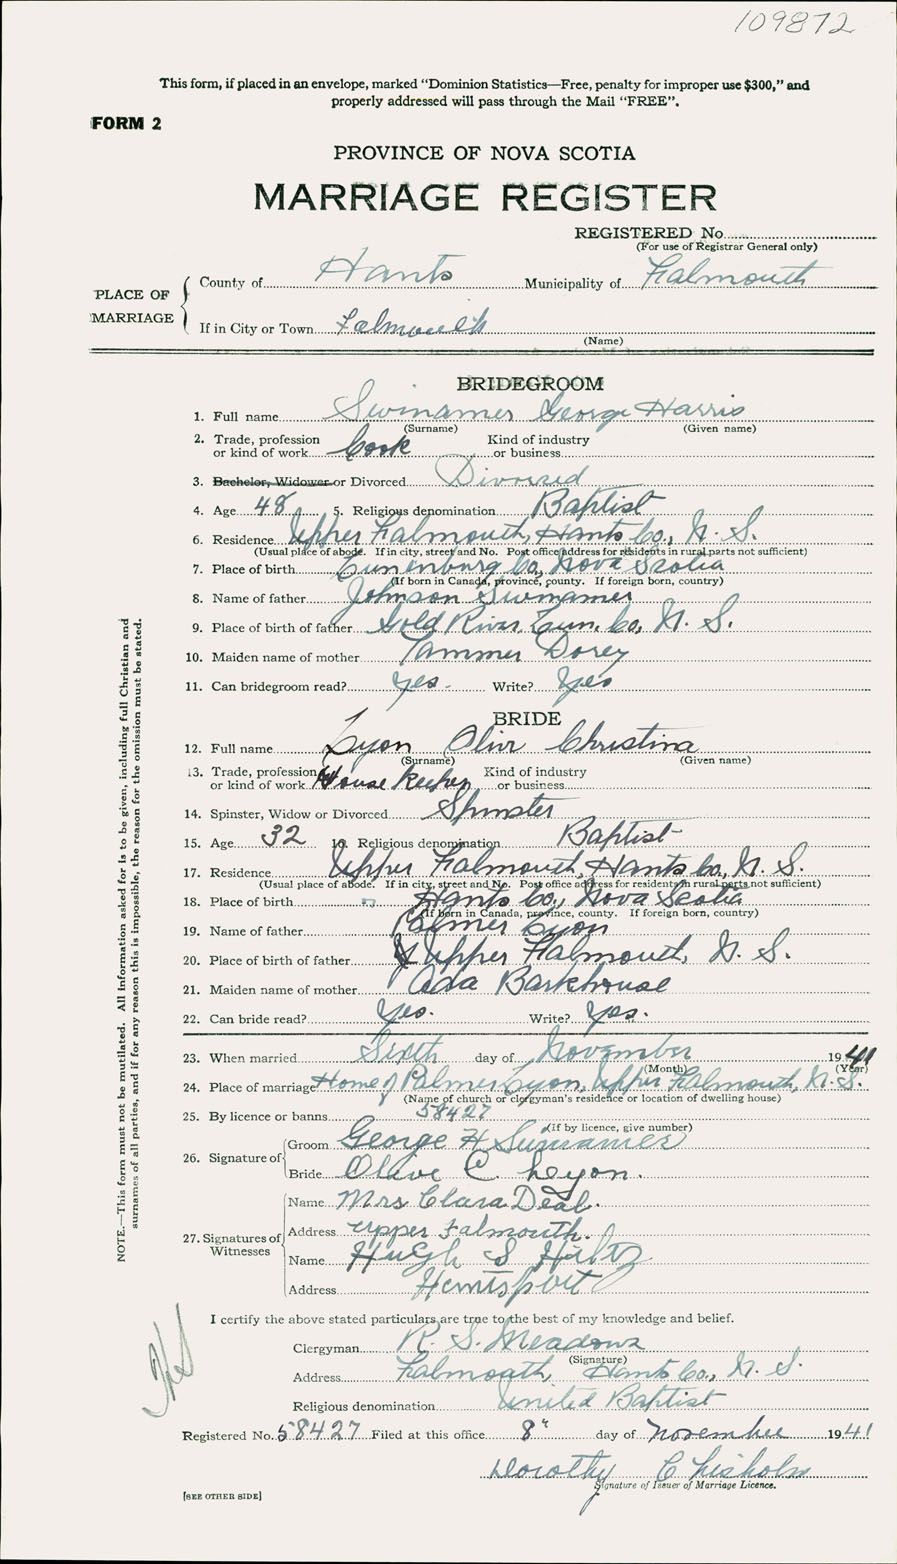 109872
This form, if placed in an envelope, marked "Dominion Statistics—Free, penalty for improper use $300," and
properly addressed will pass through the Mail "FREE".
FORM 2
PROVINCE OF NOVA SCOTIA
MARRIAGE REGISTER
REGISTERED No.
(For use of Registrar General only)
PLACE OF MARRIAGE
County of Hants Municipality of Falmouth
If in City or Town Falmouth
(Name)
BRIDEGROOM
1. Full name Swinamer George Harris
(Surname) (Given name)
2. Trade, profession or kind of work Cook Kind of industry or business
3. Bachelor, Widower or Divorced Divorced
4. Age 48 5. Religious denomination Baptist
6. Residence Upper Falmouth, Hants Co., N. S.
(Usual place of abode. If in city, street and No. Post office address for residents in rural parts not sufficient)
7. Place of birth Lunenburg Co, Nova Scotia
(If born in Canada, province, county. If foreign born, country)
8. Name of father Johnson Swinamer
9. Place of birth of father Gold River, Lun. Co, N. S.
10. Maiden name of mother Tammer Dorey
11. Can bridegroom read? Yes. Write? Yes
BRIDE
12. Full name Lyon Olive Christina
(Surname) (Given name)
13. Trade, profession or kind of work House Keeper Kind of industry or business
14. Spinster, Widow or Divorced Spinster
15. Age 32 16. Religious denomination Baptist
17. Residence Upper Falmouth, Hants Co, N. S.
(Usual place of abode. If in city, street and No. Post office address for residents in rural parts not sufficient)
18. Place of birth Hants Co., Nova Scotia
(If born in Canada, province, county. If foreign born, country)
19. Name of father Palmer Lyon
20. Place of birth of father Upper Falmouth, N. S.
21. Maiden name of mother Ada Barkhouse
22. Can bride read? Yes. Write? Yes.
23. When married Sixth day of November 1941
(Month) (Year)
24. Place of marriage Home of Palmer Lyon, Upper Falmouth, N. S.
(Name of church or clergyman's residence or location of dwelling house)
25. By licence or banns 58427
(If by licence, give number)
26. Signature of Groom George H Swinamer
Bride Olive C. Lyon.
27. Signatures of Witnesses
Name Mrs Clara Deal.
Address Upper Falmouth.
Name Hugh S Hiltz
Address Hantsport
I certify the above stated particulars are true to the best of my knowledge and belief.
Clergyman R. S. Meadows
(Signature)
Address Falmouth, Hants Co., N. S.
Religious denomination United Baptist
Registered No. 58427 Filed at this office 8" day of November 1941
Dorothy Chisholm
Signature of Issuer of Marriage Licence.
[SEE OTHER SIDE]
NOTE.—This form must not be mutilated. All Information asked for is to be given, including full Christian and
surnames of all parties, and if for any reason this is impossible, the reason for the omission must be stated.